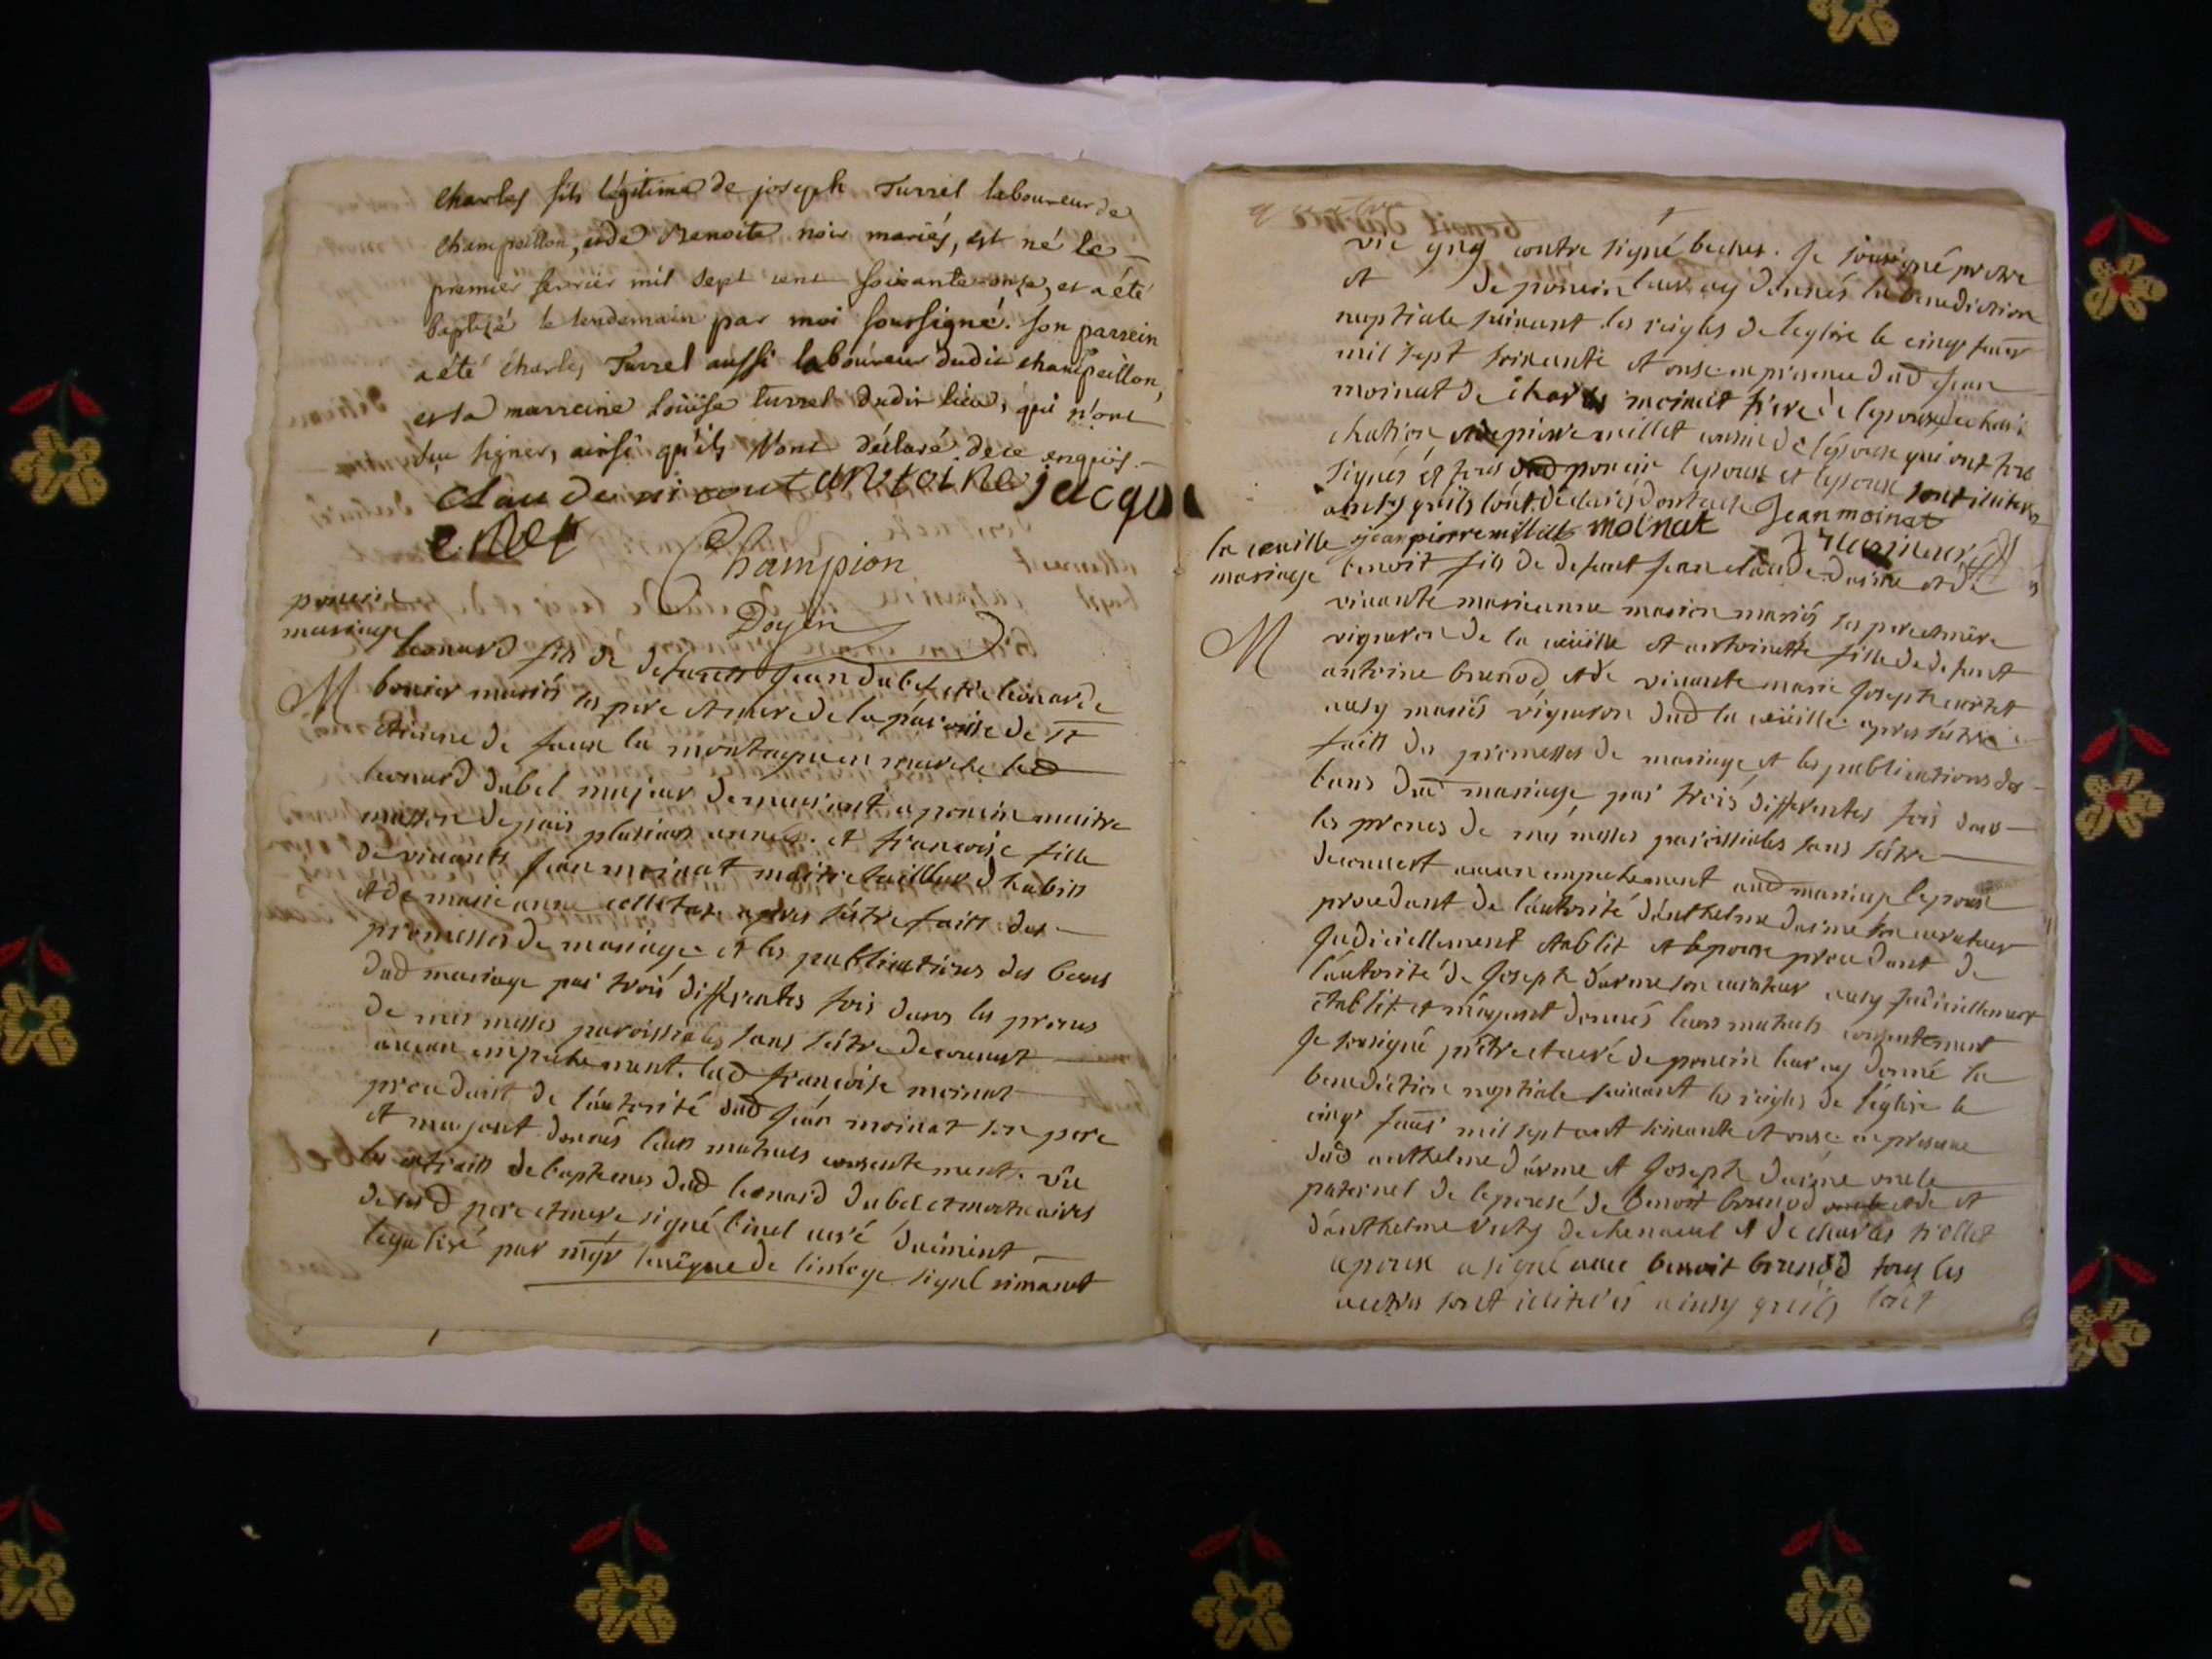 Charles fils légitime de joseph Turrel laboureur de
champeillon, et de Benoite noir mariés, est né le
premier fevrier mil sept cent soixante-onze, et a été
baptizé le lendemain par moi soussigné. son parrein
a été Charles Turrel aussi laboureur dudit champeillon,
et la marreine Loüise turrel dudit lieu, qui n'ont
sçu signer, ainsi qu'ils l'ont déclaré de ce enquis.
Claude nicout antoine jacqu
Champion
Doyen
poncin
mariage
leonard fils de defunt Jean dubel et de leonarde
M
bonier mariés ses pere et mere de la paroisse de St
etienne de faux la montagne en marche led
leonard dubel majeur demeurant a poncin maitre
masson depuis plusieurs années. et francoise fille
de vivants Jean moinat maitre tailleur d habits
et de marie anne colletaz apres s'éstre faitt des
promesses de mariage et les publications des bans
dud mariage par trois differentes fois dans les prones
de mes messes paroissiales sans s'éstre decouvert
aucun empechement. lad francoise moinat
procedant de l'áutorité dud Jean moinat son pere
et mayant donnés leurs mutuels consentement. vû
les extraitt de baptemes dud leonard dubel et mortuaires
de sesd pere et mere signé binel curé düement
legalisé par mgr leveque de limoge signé simanet
vic gng contre signé becher. Je sousigné pretre
et de poncin leur ay donnés la benediction
nuptiale suivant les reigles de leglise le cinqe feuvr
mil sept soixante et onse en presence dud Jean
moinat de charles moinat frere de lepouse de
chation de pierre millet cousin de lépouse qui ont tous
signés et tous dud poncin lepoux et lepouse sont iliteres
ainsy qu'ils lónt déclarés dont acte Jean moinat
jean pierre millet moinat
la cueille
mariage
benoit fils de defunt Jean claude darme et de
vivante marieanne marion mariés ses pere et mére
M
vigneron de la cuëille et antoinette fille de defunt
antoine brunod et de vivante marie Joseph curtet
ausy mariés vigneron dud la cuëille apres s'éstre
faitt des promesses de mariage et les publications des
bans dud mariage par trois differentes fois dans
les prones de mes messes paroissiales sans s'éstre
decouvert aucun empechement aud mariage lepoux
procedant de l'áutorité d'ánthelme darme son curateur
Judiciellement etablit et lepouse procedant de
l'áutorité de Joseph darme son curateur ausy judiciellement
etablit et m'áyant donnés leurs mutuels consentement
Je sousigné prêtre et curé de poncin leur ay donné la
benediction nuptiale suivant les reigles de l'église le
cinqe feuvr mil sept cent soixante et onse en presence
dud anthelme darme et Joseph darme oncle
paternel de lepouse de benoit brunod et de et
d'ánthelme ruty de chenavel et de charles
lepoux a signé avec benoit brunod tous les
autres sont iliterés ainsy qu'ils lont